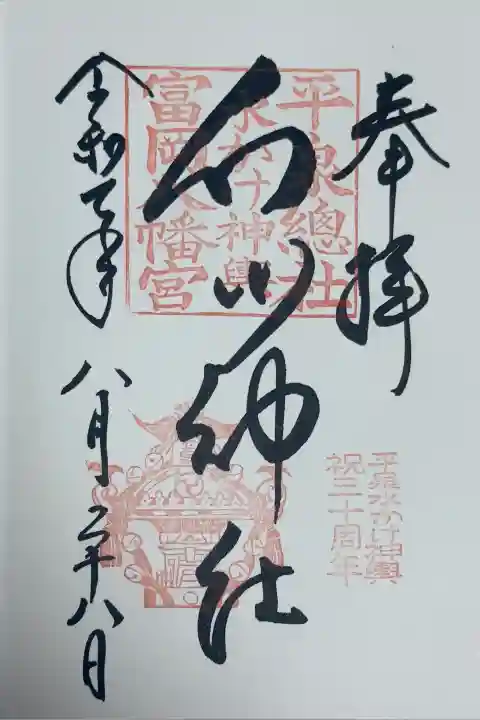 奉拝
平泉總社
水かけ神輿
富岡八幡宮
白山神社
令和元年八月二十八日
平泉水かけ神輿
祝三十周年